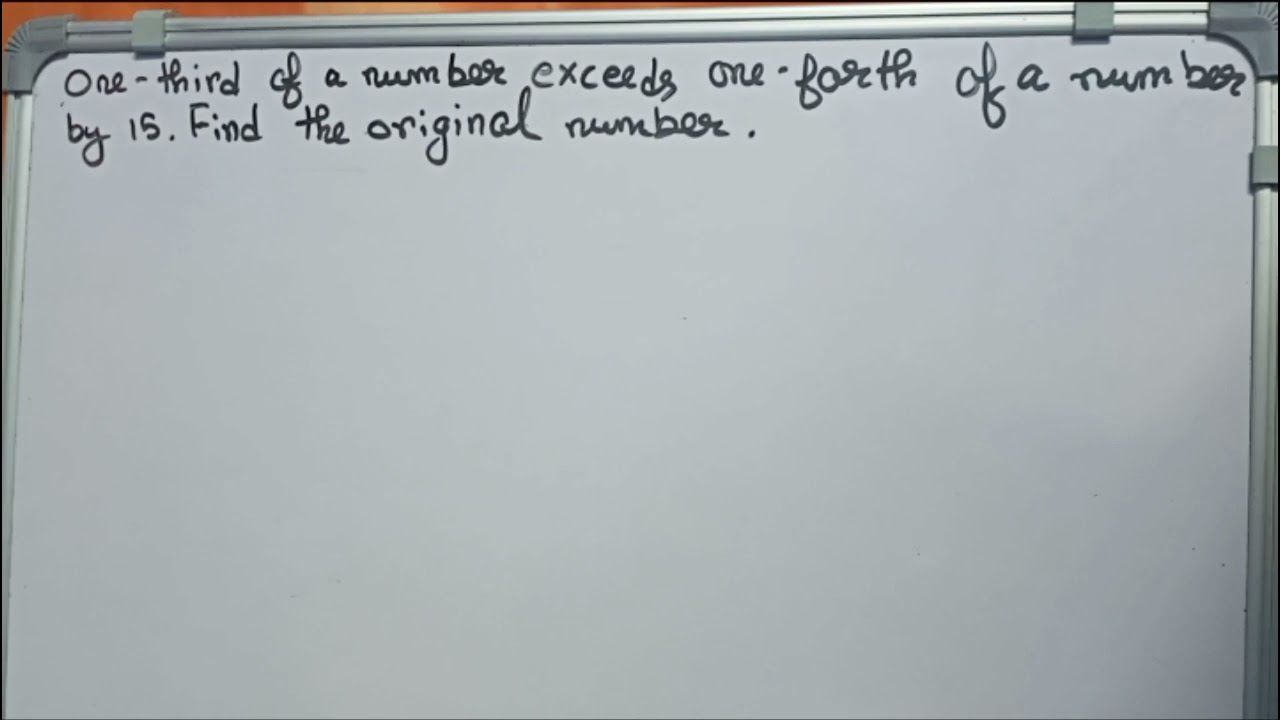 One-third of a number exceeds one-forth of a number
by 15. Find the original number.